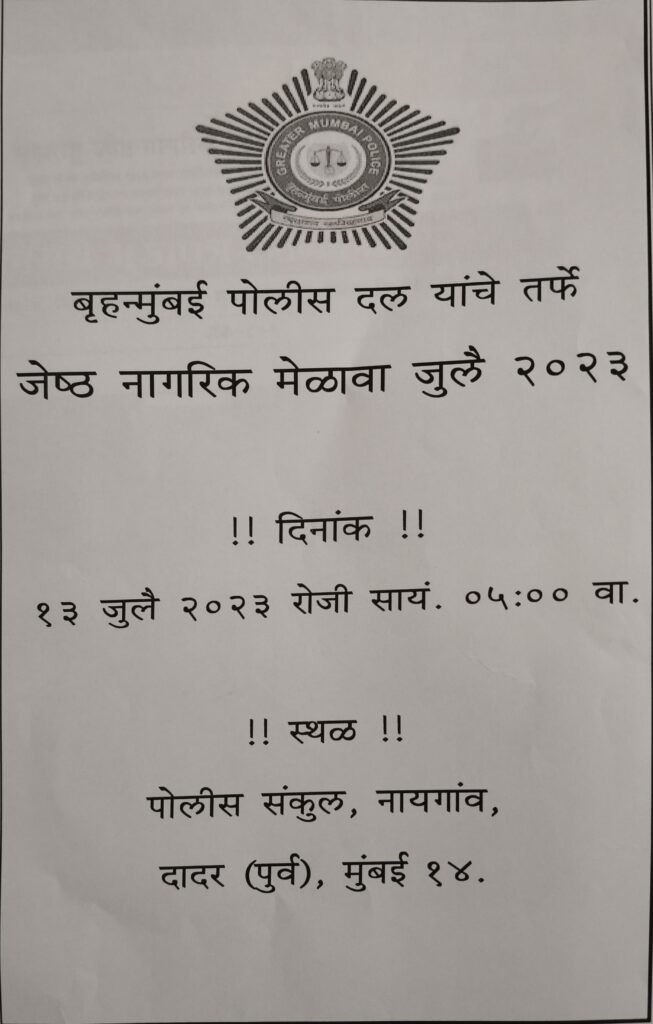 GREATER MUMBAI POLICE
बृहन्मुंबई पोलीस
बृहन्मुंबई पोलीस दल यांचे तर्फे
जेष्ठ नागरिक मेळावा जुलै २०२३
!! दिनांक !!
१३ जुलै २०२३ रोजी सायं. ०५:०० वा.
!! स्थळ !!
पोलीस संकुल, नायगांव,
दादर (पुर्व), मुंबई १४.